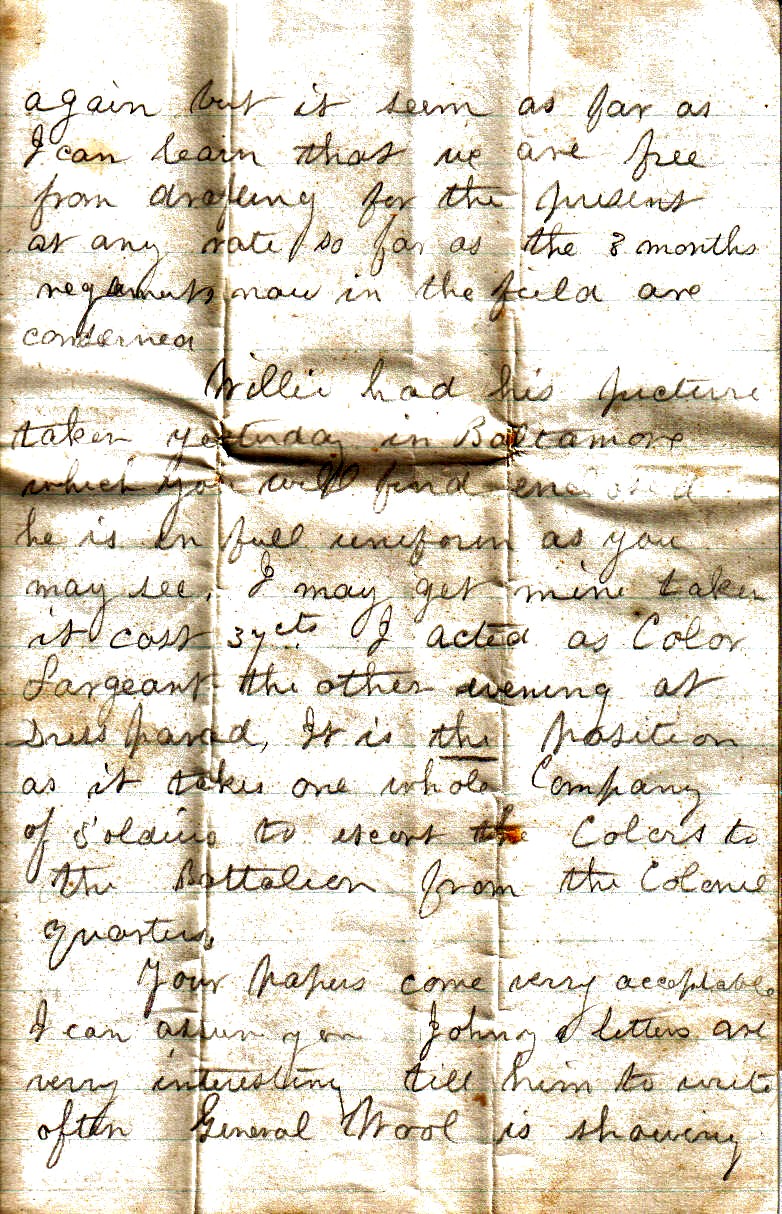 again but it seem as far as
I can learn that we are free
from drafting for the present
at any rate so far as the 3 months
regements now in the field are
conserned
Willie had his picture
taken yesturday in Baltamore
which you will find enclosed
he is in full uniform as you
may see. I may get mine taken
it cost 37 cts I acted as Color
Sargeant the other evening at
Dress parad, It is the position
as it takes one whole Company
of Soldiers to escort the Colors to
the Battalion from the Colonel
quarters.
Your papers come verry acceptable
I can assure you Johnys letters are
verry interesting tell him to write
often General Wool is showing